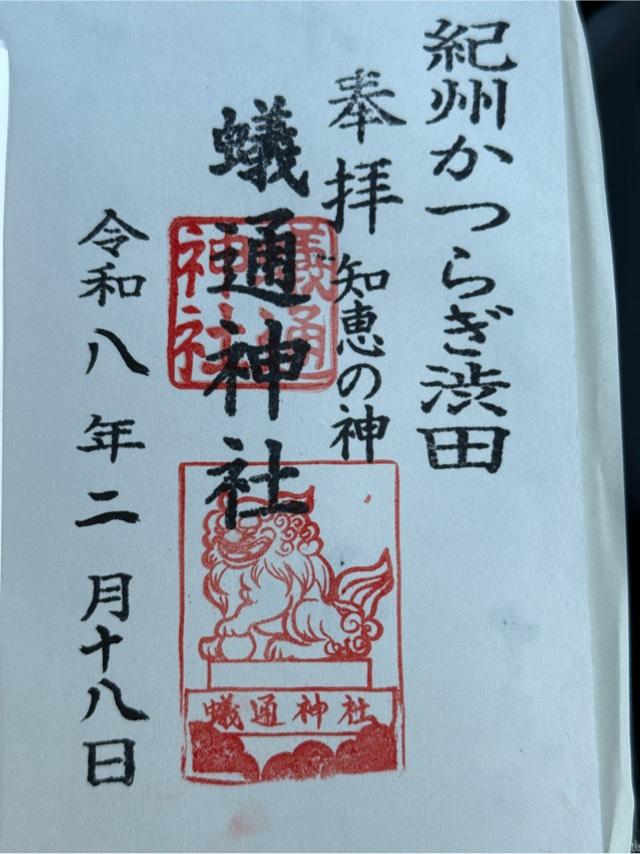 紀州かつらぎ渋田
奉拝 知恵の神
蟻通神社
蟻通
神社
令和八年二月十八日
蟻通神社